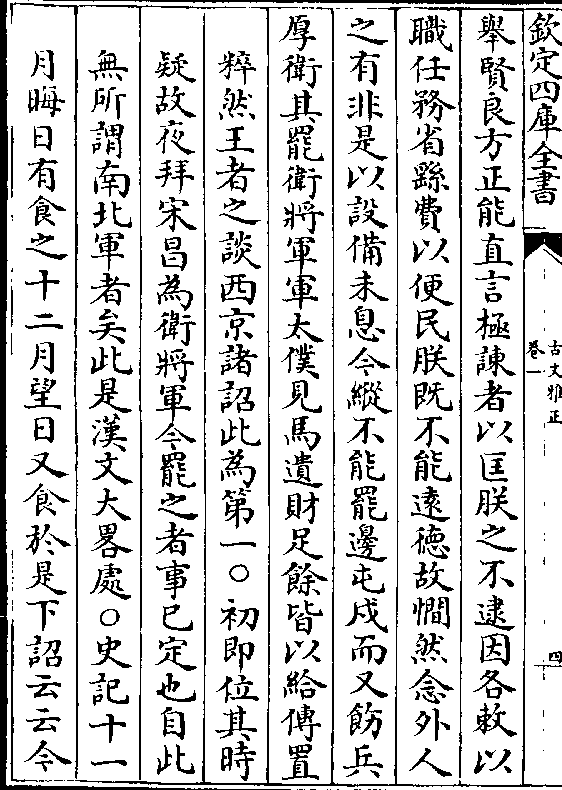 欽定四庫全書
古文雅正
卷一
四
舉賢良方正能直言極諫者以匡朕之不逮因各敕以
職任務省繇費以便民朕既不能遠德故憪然念外人
之有非是以設備未息今縱不能罷邊屯戍而又飭兵
厚衛其罷衛將軍軍太僕見馬遺財足餘皆以給傳置
粹然王者之談西京諸詔此為第一○初即位其時
疑故夜拜宋昌為衛將軍今罷之者事已定也自此
無所謂南北軍者矣此是漢文大畧處○史記十一
月晦日有食之十二月望日又食於是下詔云云今